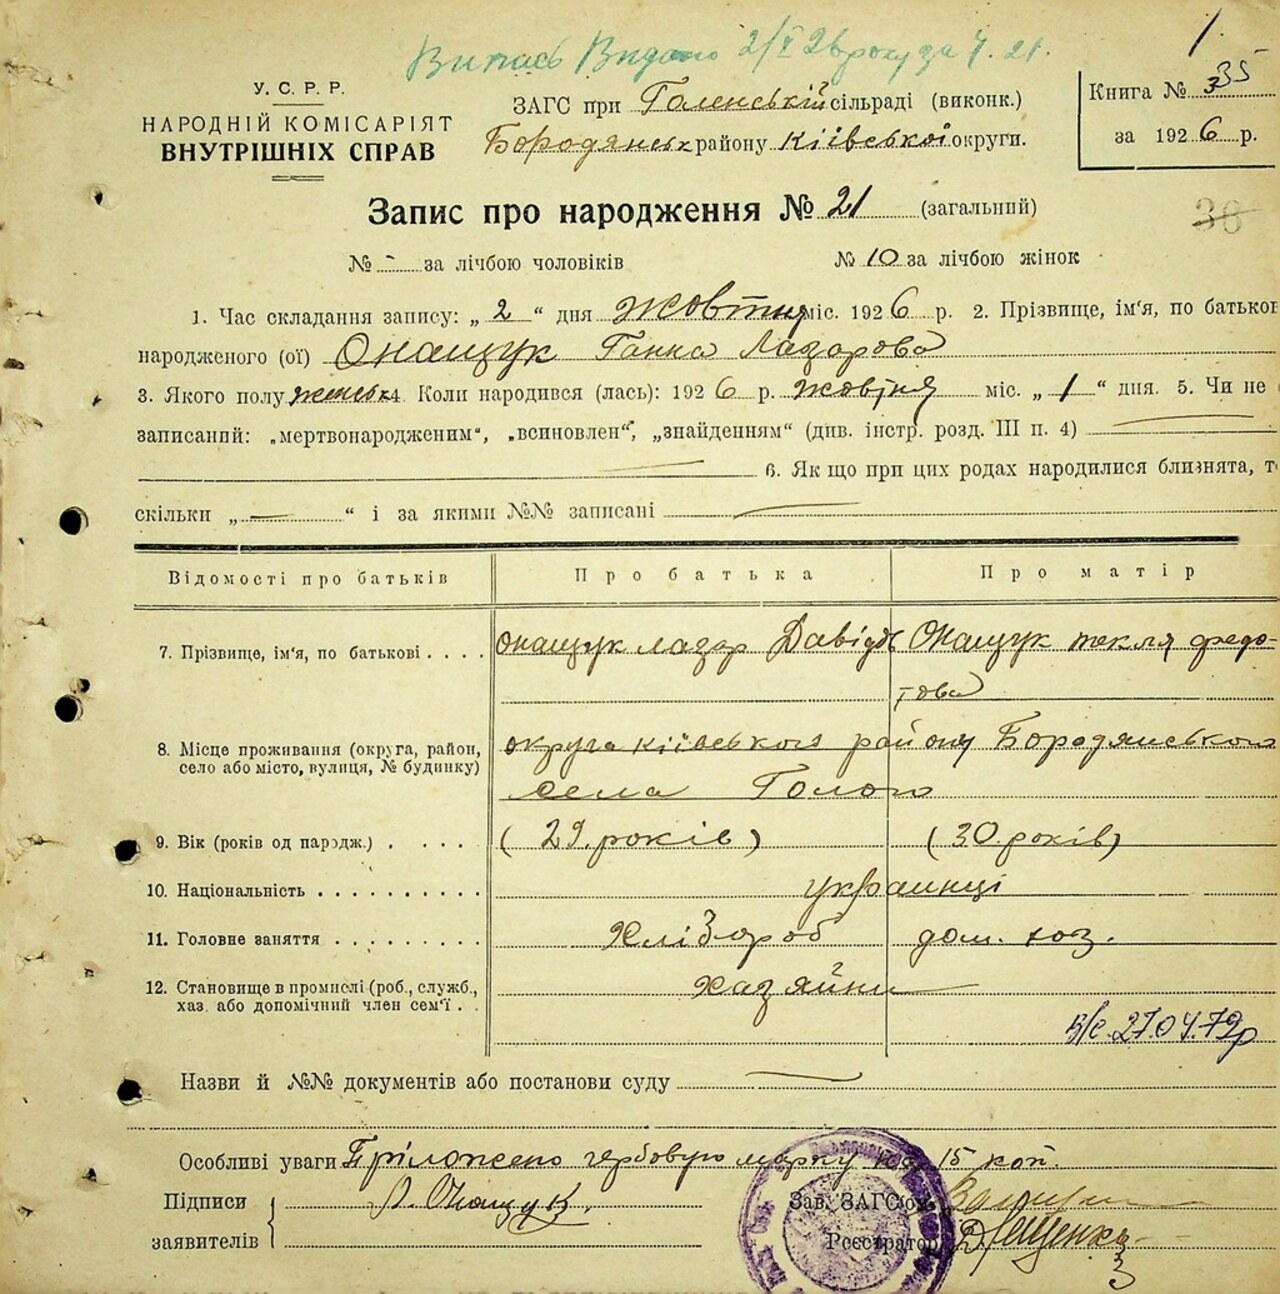 Випись Видано 2/X 26 року за № 21.
1.
У. С. Р. Р.
НАРОДНІЙ КОМІСАРІЯТ
ВНУТРІШНІХ СПРАВ
ЗАГС при Галенській сільраді (виконк.)
Бородянськ району Київської округи.
Книга № 335
за 1926 р.
Запис про народження № 21 (загальний)
36
№ - за лічбою чоловіків № 10 за лічбою жінок
1. Час складання запису: „ 2 “ дня жовтня міс. 1926 р. 2. Прізвище, ім'я, по батькові
народженого (ої) Онащук Ганна Лазарова
3. Якого полу жіньк 4. Коли народився (лась): 1926 р. жовтня міс. „ 1 “ дня. 5. Чи не
записаний: „мертвонародженим“, „всиновлен“, „знайденням“ (див. інстр. розд. III п. 4) —
— 6. Як що при цих родах народилися близнята, т
скільки „ — “ і за якими №№ записані —
Відомості про батьків Про батька Про матір
7. Прізвище, ім'я, по батькові . . . . Онащук Лазар Давідов Онащук текля федо-
това
8. Місце проживання (округа, район,
село або місто, вулиця, № будинку)
округа київського району Бородянського
села Галого
9. Вік (років од народж.) . . . . . (29. років) (30. років)
10. Національність . . . . . . . . . . українці
11. Головне заняття . . . . . . . . . Хлібороб дом. хоз.
12. Становище в промислі (роб., служб.,
хаз. або допомічний член сем'ї . .
хазяйни
в/с. 27.04.72р
Назви й №№ документів або постанови суду —
Особливі уваги Пріложено гербовую марку на 15 коп.
Підписи
заявителів
Л. Онащук.
Зав. ЗАГС'ом
Реєстратор